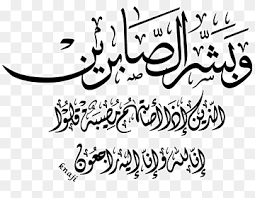 وَبَشِّرِ الصَّابِرِينَ
الذين إذا أصابتهم مصيبة قالوا
إنا لله وإنا إليه راجعون
knaji